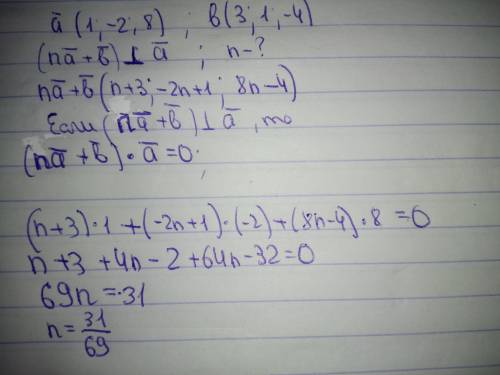 ā (1; -2; 8) ; в̄ (3; 1; -4)
(nā + в̄) ⊥ ā ; n - ?
nā + в̄ (n+3; -2n+1; 8n-4)
Если (nā + в̄) ⊥ ā, то
(nā + в̄) · ā = 0;
(n+3)·1 + (-2n+1)·(-2) + (8n-4)·8 = 0
n + 3 + 4n - 2 + 64n - 32 = 0
69n = 31
n = 31/69